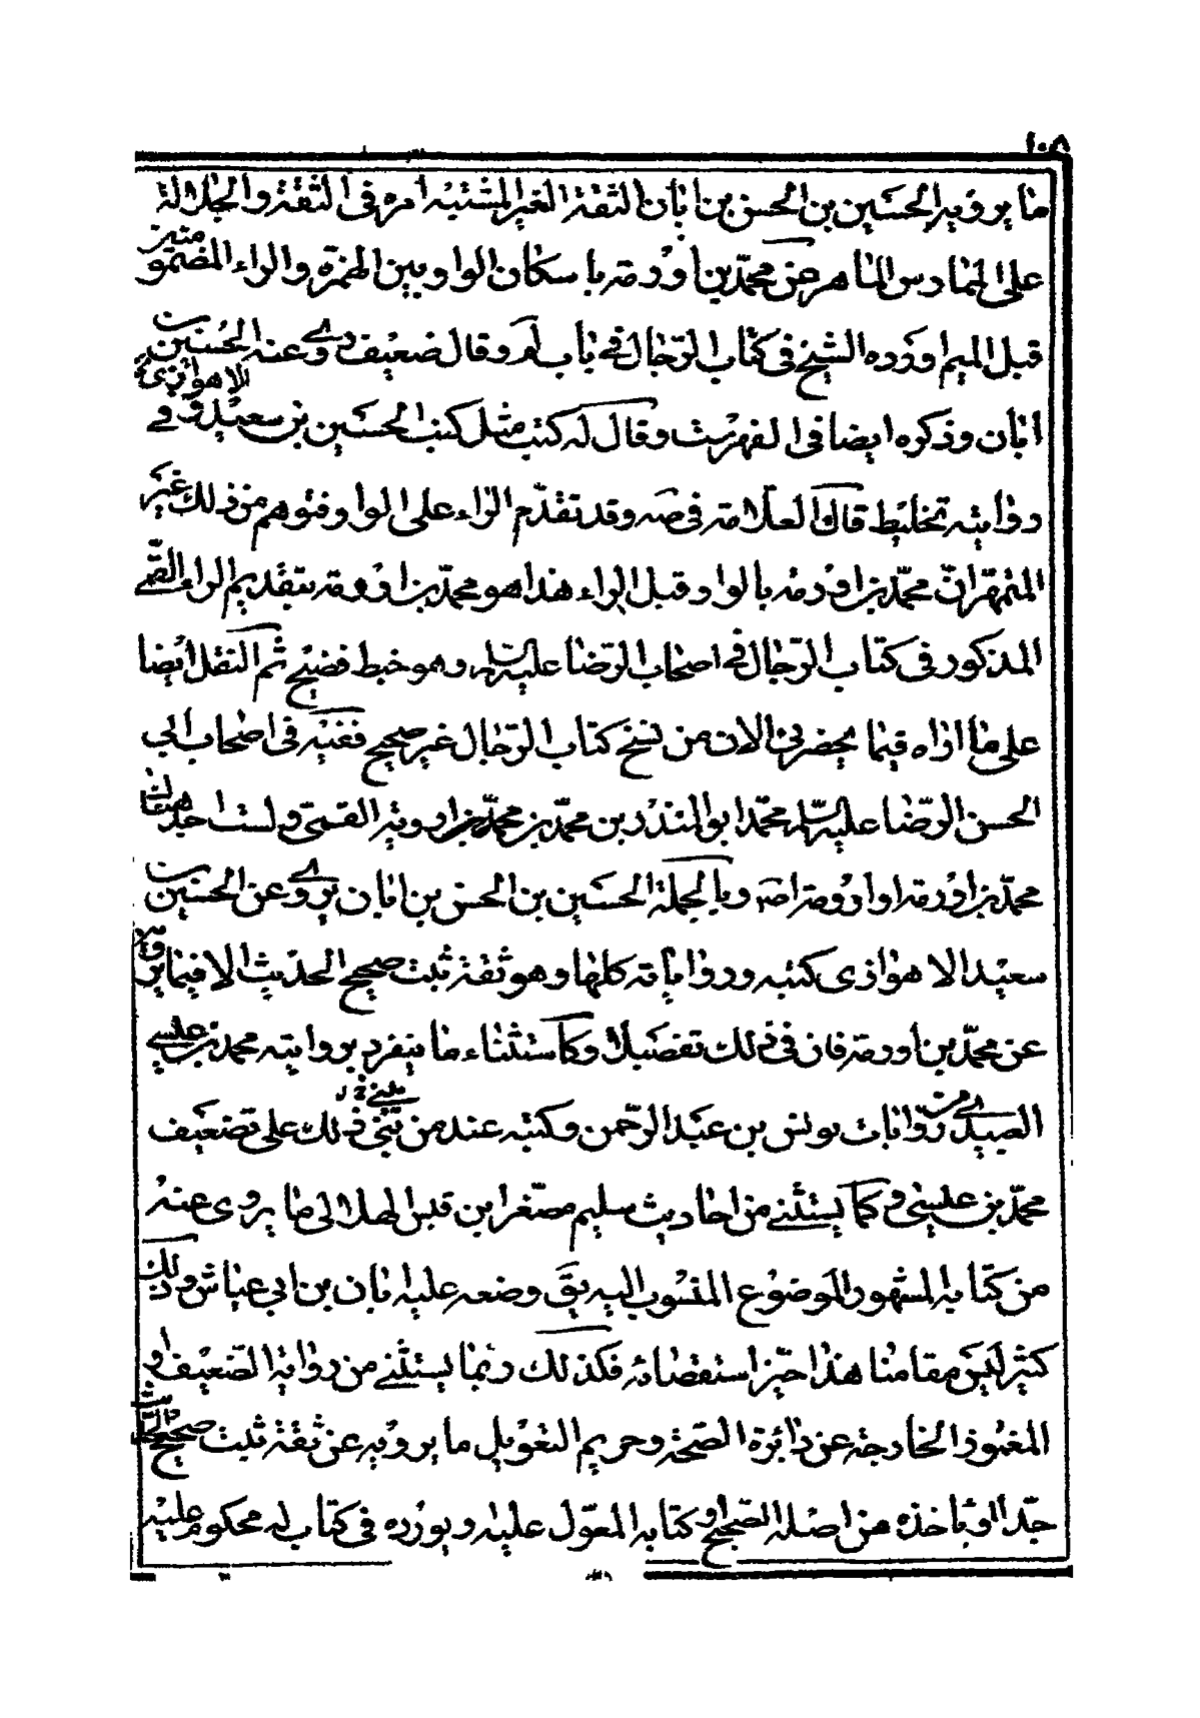 ١٠٨
ما يرويه الحسين بن الحسن بن ابان الثقة الغير المشتبه امره في الثقة والجلالة
على الممارس الماهر عن محمّد بن اورمة باسكان الواو بين الهمزة والراء المضمومتين
قبل الميم اورده الشيخ في كتاب الرّجال في باب لم وقال ضعيف روى عنه الحسين بن
ابان وذكره ايضا في الفهرست وقال له كتب مثل كتب الحسين بن سعيد الاهوازي وفي
رواياته تخليط قال العلامة في صه وقد تقدّم الراء على الواو فتوهم من ذلك غير
المتمهّر انّ محمّد بن اورمة بالواو قبل الراء هذا هو محمد بن ارومة بتقديم الراء القمي
المذكور في كتاب الرّجال في اصحاب الرّضا عليه السلم وهو خبط فضيح ثم النقل ايضا
على ما اراه فيما يحضرني الان من نسخ كتاب الرّجال غير صحيح ففيه في اصحاب ابي
الحسن الرّضا عليه السّلم محمّد ابو المنذر بن محمّد بن محمّد بن اروية القمّي ولست اجد هناك
محمّد بن اورمة او ارومة اصه وبالجملة الحسين بن الحسن بن ابان يروي عن الحسين بن
سعيد الاهوازي كتبه ورواياته كلها وهو ثقة ثبت صحيح الحديث الا فيما يرويه
عن محمّد بن اورمة فان في ذلك تفصيلا وكاستثناء ما يتفرد بروايته محمد بن عيسى
العبيدي من روايات يونس بن عبد الرّحمن وكتبه عند من يبني ذلك على تضعيف
محمّد بن عيسى وكما يستثنى من احاديث سليم مصغرا بن قيس الهلالي ما يروى عنه
من كتابه المشهور الموضوع المنسوب اليه بق وضعه عليه ابان بن ابي عياش وذلك
كثير ليس مقامنا هذا حيّز استقصائه فكذلك ربّما يستثنى من رواية الضّعيف او
المغموز الخارجة عن دائرة الصّحة وحريم التعويل ما يرويه عن ثقة ثبت صحيح الحديث
جدّا او ياخذه من اصله الصّحيح او كتابه المعوّل عليه ويورده في كتاب له محكوم عليه